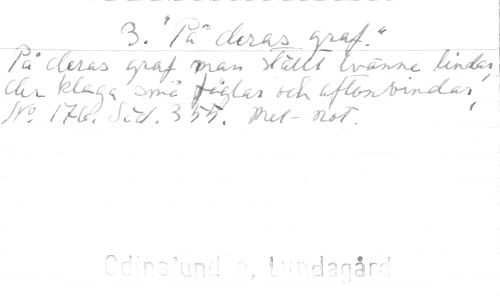 3. "På deras graf."
På deras graf man ställt tvänne lindar,
der klaga små foglar och aftonvindar,
No. 176. Sid. 355. Mel-not.
Odinslund, Lundagård